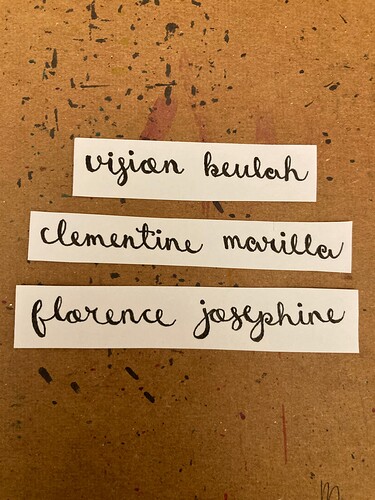 vision beulah
clementine marilla
florence josephine